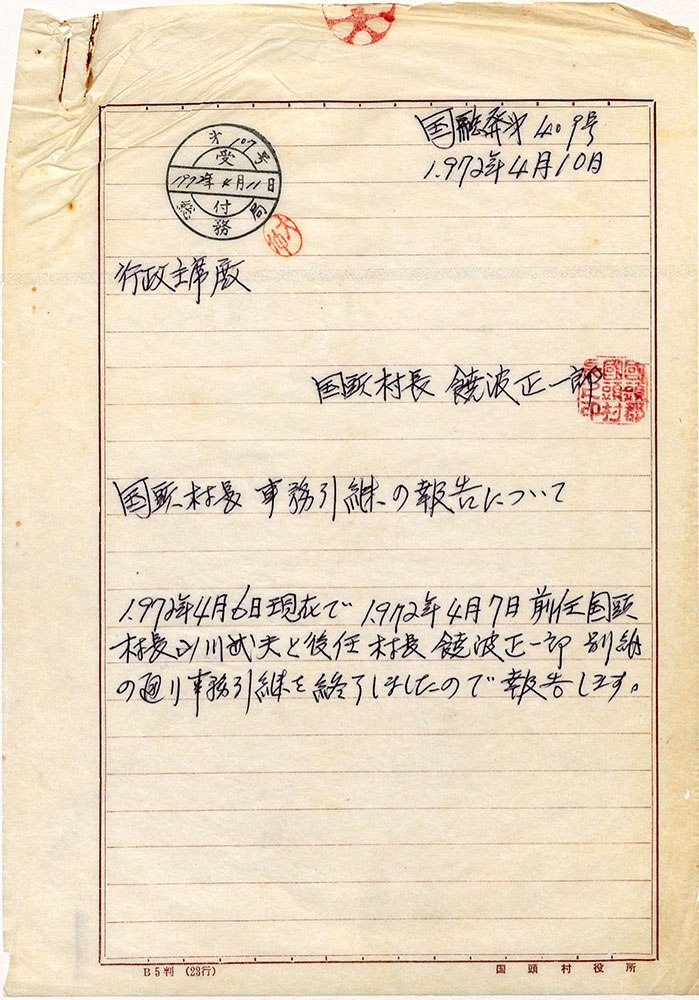 国総発第409号
1972年4月10日
第107号
受
1972年4月11日
付
総務局
行政主席殿
国頭村長 饒波正一郎
国頭村長 事務引継の報告について
1972年4月6日現在で 1972年4月7日 前任国頭
村長山川武夫と後任 村長 饒波正一郎 別紙
の通り事務引継を終了しましたので報告します。
B5判 (23行)
国頭村役所